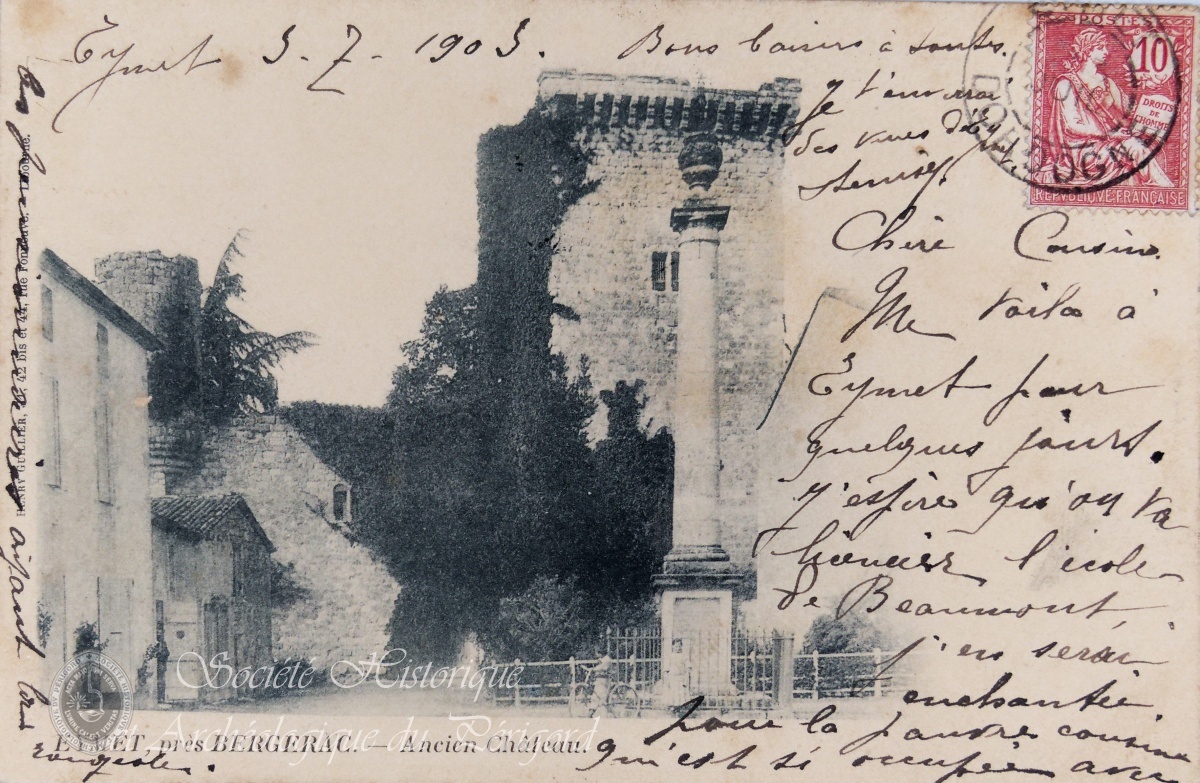 Eymet 5-7-1903. Bons baisers à toutes.
Je t'enverrai
des vues
Chère Cousine
Me voila à
Eymet pour
quelques jours.
J'espère qu'on va
licencier l'école
de Beaumont,
j'en serai
enchantée
pour la pauvre cousine
qu'est si occupée avec
ayant
POSTES
10
DROITS
DE
L'HOMME
REPUBLIQUE FRANÇAISE
DORDOGNE
HENRY GUILLIER, 42 bis et 44, rue
Société Historique
et Archéologique du Périgord
EYMET près BERGERAC. — Ancien Château.